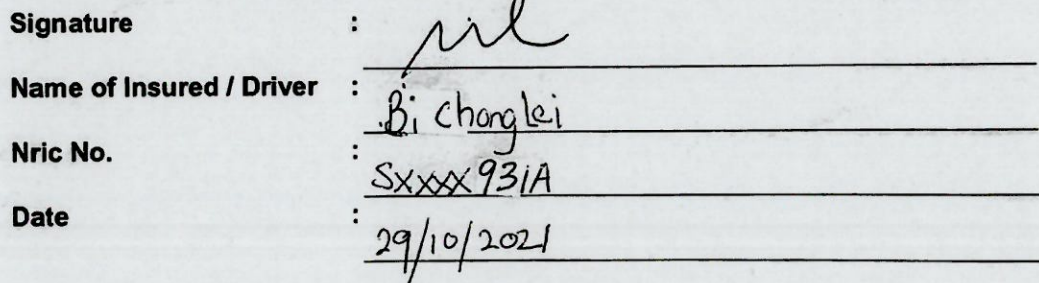 Signature :
Name of Insured / Driver : Bi Chonglei
Nric No. : SXXXX931A
Date : 29/10/2021